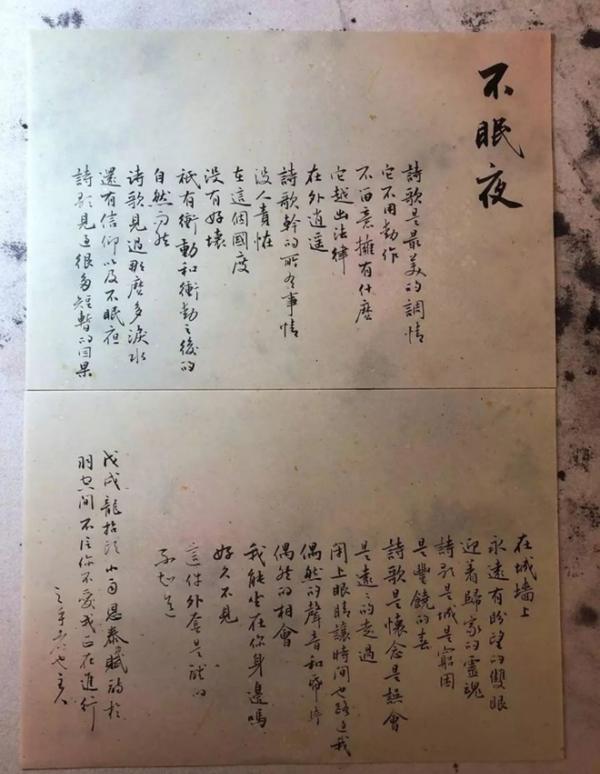 不眠夜
詩歌是最美的調情
它不用動作
不留意擁有什麽
它越出法律
在外逍遥
詩歌幹的所有事情
没人責怪
在這個國度
没有好壞
衹有衝動和衝動之後的
自然而然
诗歌見過那麽多淚水
還有信仰以及不眠夜
詩歌見過很多短暫的因果
在城墻上
永遠有盼望的雙眼
迎着歸家的靈魂
詩歌是城是窮困
是豐饒的春
詩歌是懷念是
是遠遠的走過
閉上眼睛讓時間也路過我
偶然的聲音和
偶然的相會
我能坐在你身邊嗎
好久不見
這件外套是誰的
不知道
戊戌龍抬頭小雨恩泰賦詩於
羽
間不信你不愛我正在進行